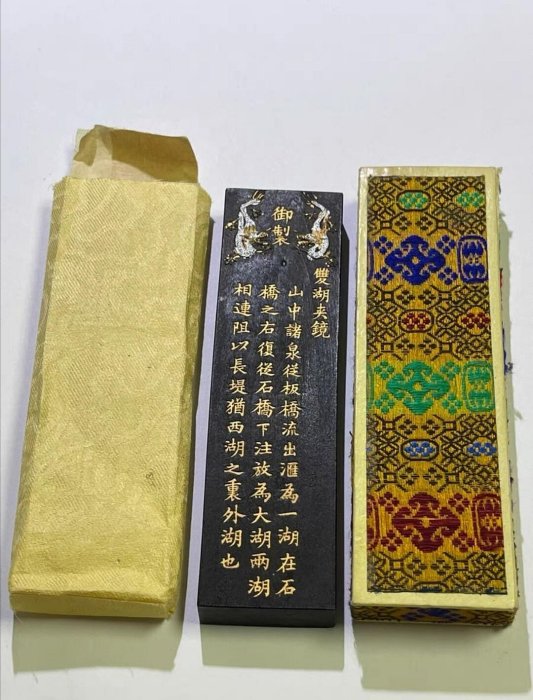 御製
雙湖夾鏡
山中諸泉從板橋流出滙為一湖在石
橋之右復從石橋下注放為大湖兩湖
相連阻以長堤猶西湖之裏外湖也